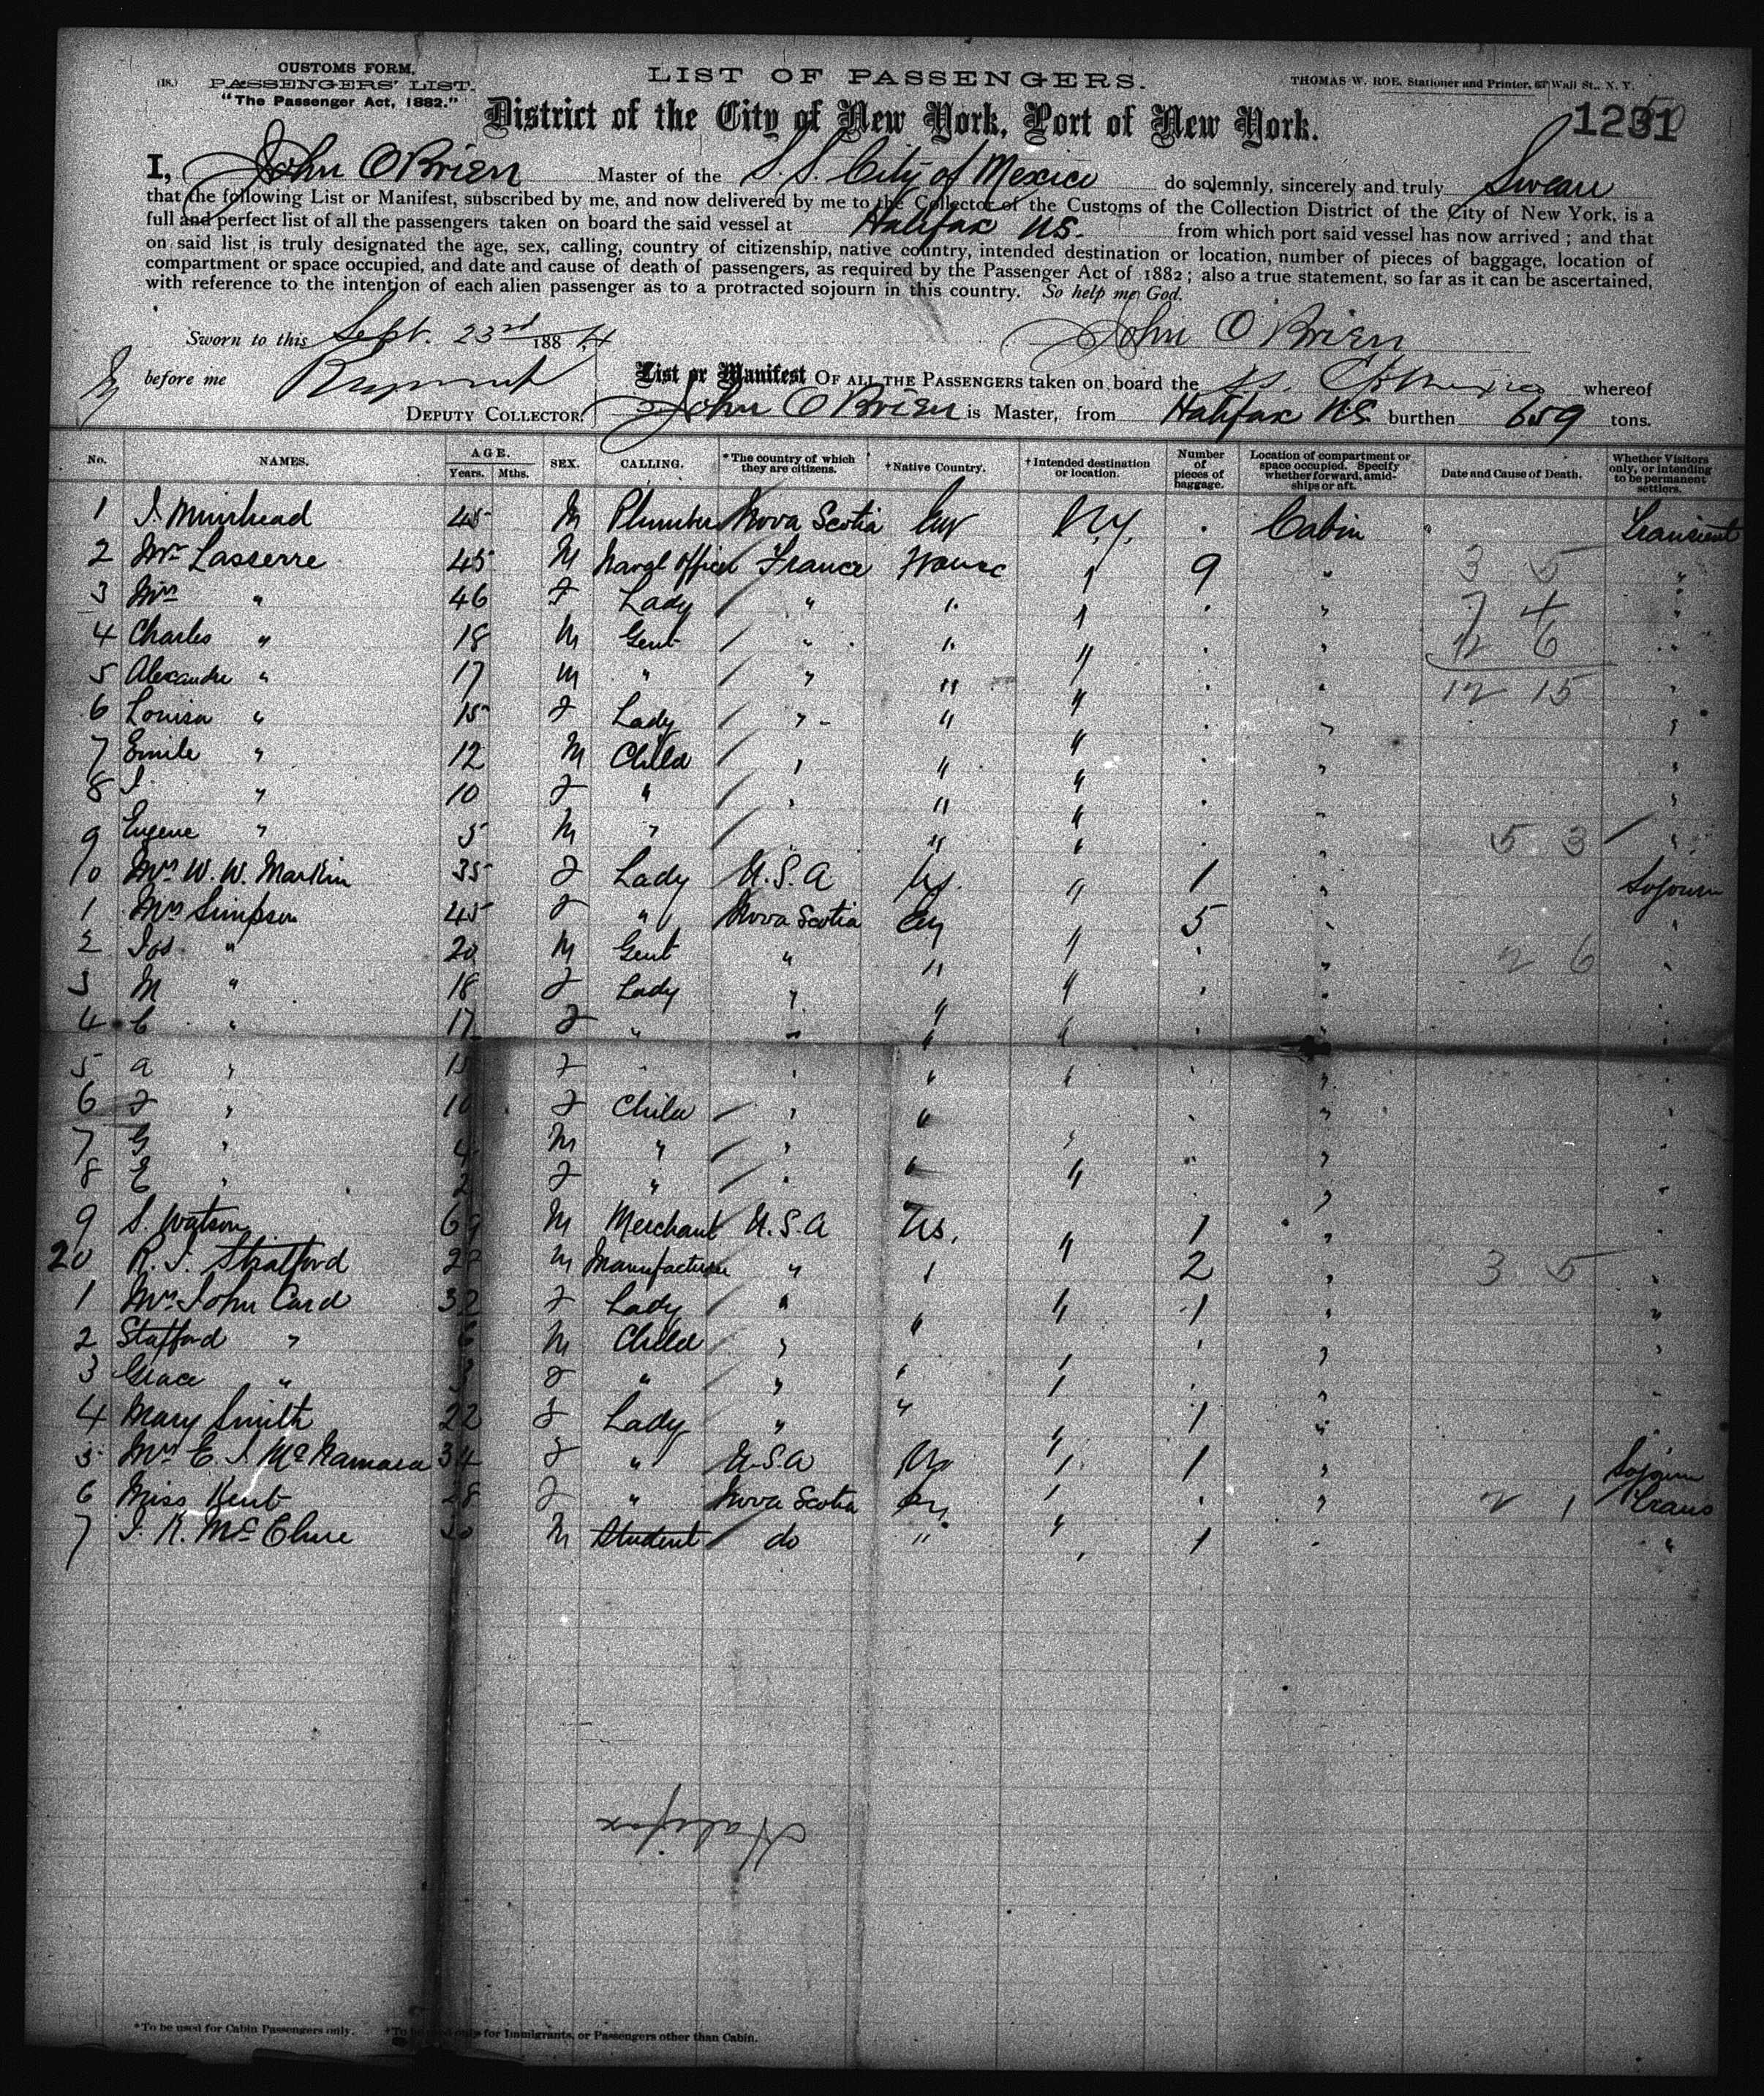 (18.) CUSTOMS FORM,
PASSENGERS' LIST.
"The Passenger Act, 1882."
LIST OF PASSENGERS.
THOMAS W. ROE, Stationer and Printer, 67 Wall St., N. Y.
District of the City of New York, Port of New York.
1231
I, John O'Brien Master of the S.S. City of Mexico do solemnly, sincerely and truly Swear
that the following List or Manifest, subscribed by me, and now delivered by me to the Collector of the Customs of the Collection District of the City of New York, is a
full and perfect list of all the passengers taken on board the said vessel at Halifax NS. from which port said vessel has now arrived; and that
on said list is truly designated the age, sex, calling, country of citizenship, native country, intended destination or location, number of pieces of baggage, location of
compartment or space occupied, and date and cause of death of passengers, as required by the Passenger Act of 1882; also a true statement, so far as it can be ascertained,
with reference to the intention of each alien passenger as to a protracted sojourn in this country. So help me God.
Sworn to this Sept. 23rd 1884 John O'Brien
before me
List or Manifest OF ALL THE PASSENGERS taken on board the SS. whereof
DEPUTY COLLECTOR. John O'Brien is Master, from Halifax N.S. burthen 659 tons.
No. NAMES. AGE. Years. Mths. SEX. CALLING. *The country of which they are citizens. †Native Country. †Intended destination or location. Number of pieces of baggage. Location of compartment or space occupied. Specify whether forward, amidships or aft. Date and Cause of Death. Whether Visitors only, or intending to be permanent settlers.
1 J. Muirhead 45 M Plumber Nova Scotia N.Y. Cabin " Transient
2 Mr Lasserre 45 M Naval Officer France " 9 " 3 5 "
3 Mrs " 46 F Lady " " " " 7 4 "
4 Charles " 18 M Gent " " " " 12 6 "
5 Alexandre " 17 M " " " " " 12 15 "
6 Louisa " 15 F Lady " " " " "
7 Emile " 12 M Child " " " " "
8 J. " 10 F " " " " " "
9 Eugene " 5 M " " " " " 5 3 "
10 Mrs W. W. Markin 35 F Lady U.S.A. " 1 " Sojourn
1 Mrs Simpson 45 F " Nova Scotia 5 " "
2 Jas " 20 M Gent " " " " 2 6 "
3 M " 18 F Lady " " " " "
4 C " 17 F " " " " " "
5 A " 15 F " " " " " "
6 F " 10 F Child " " " "
7 G " 4 M " " " " "
8 E " 2 F " " " " " "
9 S. Watson 69 M Merchant U.S.A US. " 1 " "
20 R. J. Stratford M Manufacturer " " 2 " 3 5 "
1 Mrs John Card 32 F Lady " " " 1 " "
2 Stafford " 6 M Child " " "
3 Grace " F " " " " " "
4 Mary Smith 22 F Lady " " " 1 " "
5 Mrs E. J. McNamara 34 F " U.S.A " 1 " Sojourn
6 Miss Kent 28 F " Nova Scotia " " 2 1 Trans
7 J. R. McClure M Student do " " 1 "
Halifax
*To be used for Cabin Passengers only. †To be used only for Immigrants, or Passengers other than Cabin.